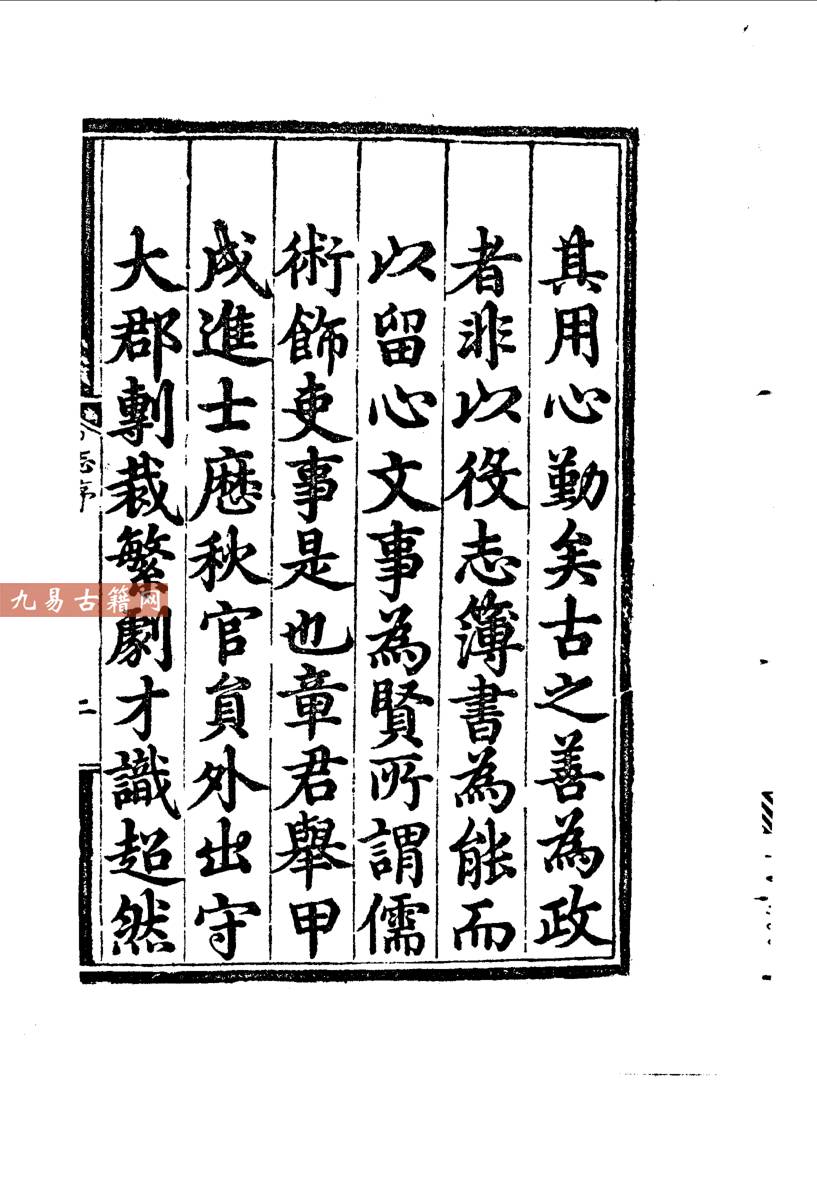 其用心勤矣古之善為政
者非以役志簿書為能而
以留心文事為賢所謂儒
術飾吏事是也章君舉甲
戌進士歷秋官員外出守
大郡剸裁繁劇才識超然
志序
二
九易古籍网